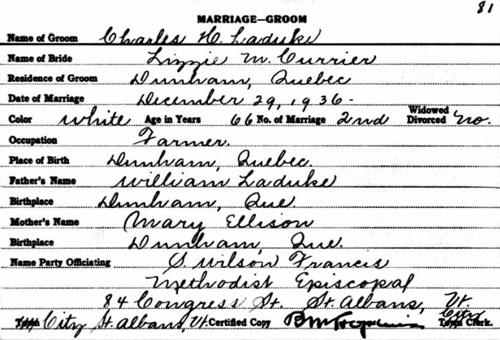 81
MARRIAGE—GROOM
Name of Groom Charles H. Laduke
Name of Bride Lizzie M. Currier
Residence of Groom Dunham, Quebec
Date of Marriage December 29, 1936-
Color white Age in Years 66 No. of Marriage 2nd Widowed Divorced No.
Occupation Farmer.
Place of Birth Dunham, Quebec.
Father's Name William Laduke
Birthplace Dunham, Que
Mother's Name Mary Ellison
Birthplace Dunham, Que.
Name Party Officiating S. Wilson Francis
Methodist Episcopal
84 Congress St. St. Albans, Vt.
City St. Albans, Vt. Certified Copy City Town Clerk.